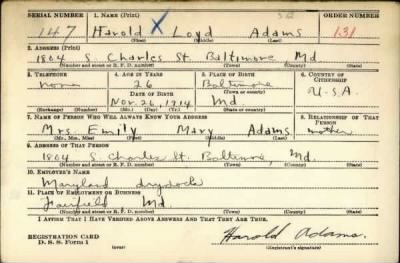 SERIAL NUMBER 1. NAME (Print) ORDER NUMBER
147 Harold X Loyd Adams 131
(First) (Middle) (Last)
2. ADDRESS (Print)
1804 S Charles St. Baltimore Md
(Number and street or R. F. D. number) (Town) (County) (State)
3. TELEPHONE 4. AGE IN YEARS 5. PLACE OF BIRTH 6. COUNTRY OF CITIZENSHIP
none 26 Baltimore
DATE OF BIRTH (Town or county) U.S.A.
Nov. 26, 1914 Md
(Exchange) (Number) (Mo.) (Day) (Yr.) (State or country)
7. NAME OF PERSON WHO WILL ALWAYS KNOW YOUR ADDRESS 8. RELATIONSHIP OF THAT PERSON
Mrs. Emily Mary Adams mother
(Mr., Mrs., Miss) (First) (Middle) (Last)
9. ADDRESS OF THAT PERSON
1804 S Charles St. Baltimore, Md.
(Number and street or R. F. D. number) (Town) (County) (State)
10. EMPLOYER'S NAME
Maryland drydock
11. PLACE OF EMPLOYMENT OR BUSINESS
Fairfield Md.
(Number and street or R. F. D. number) (Town) (County) (State)
I AFFIRM THAT I HAVE VERIFIED ABOVE ANSWERS AND THAT THEY ARE TRUE.
REGISTRATION CARD
D. S. S. Form 1
Harold Adams
(Registrant's signature)